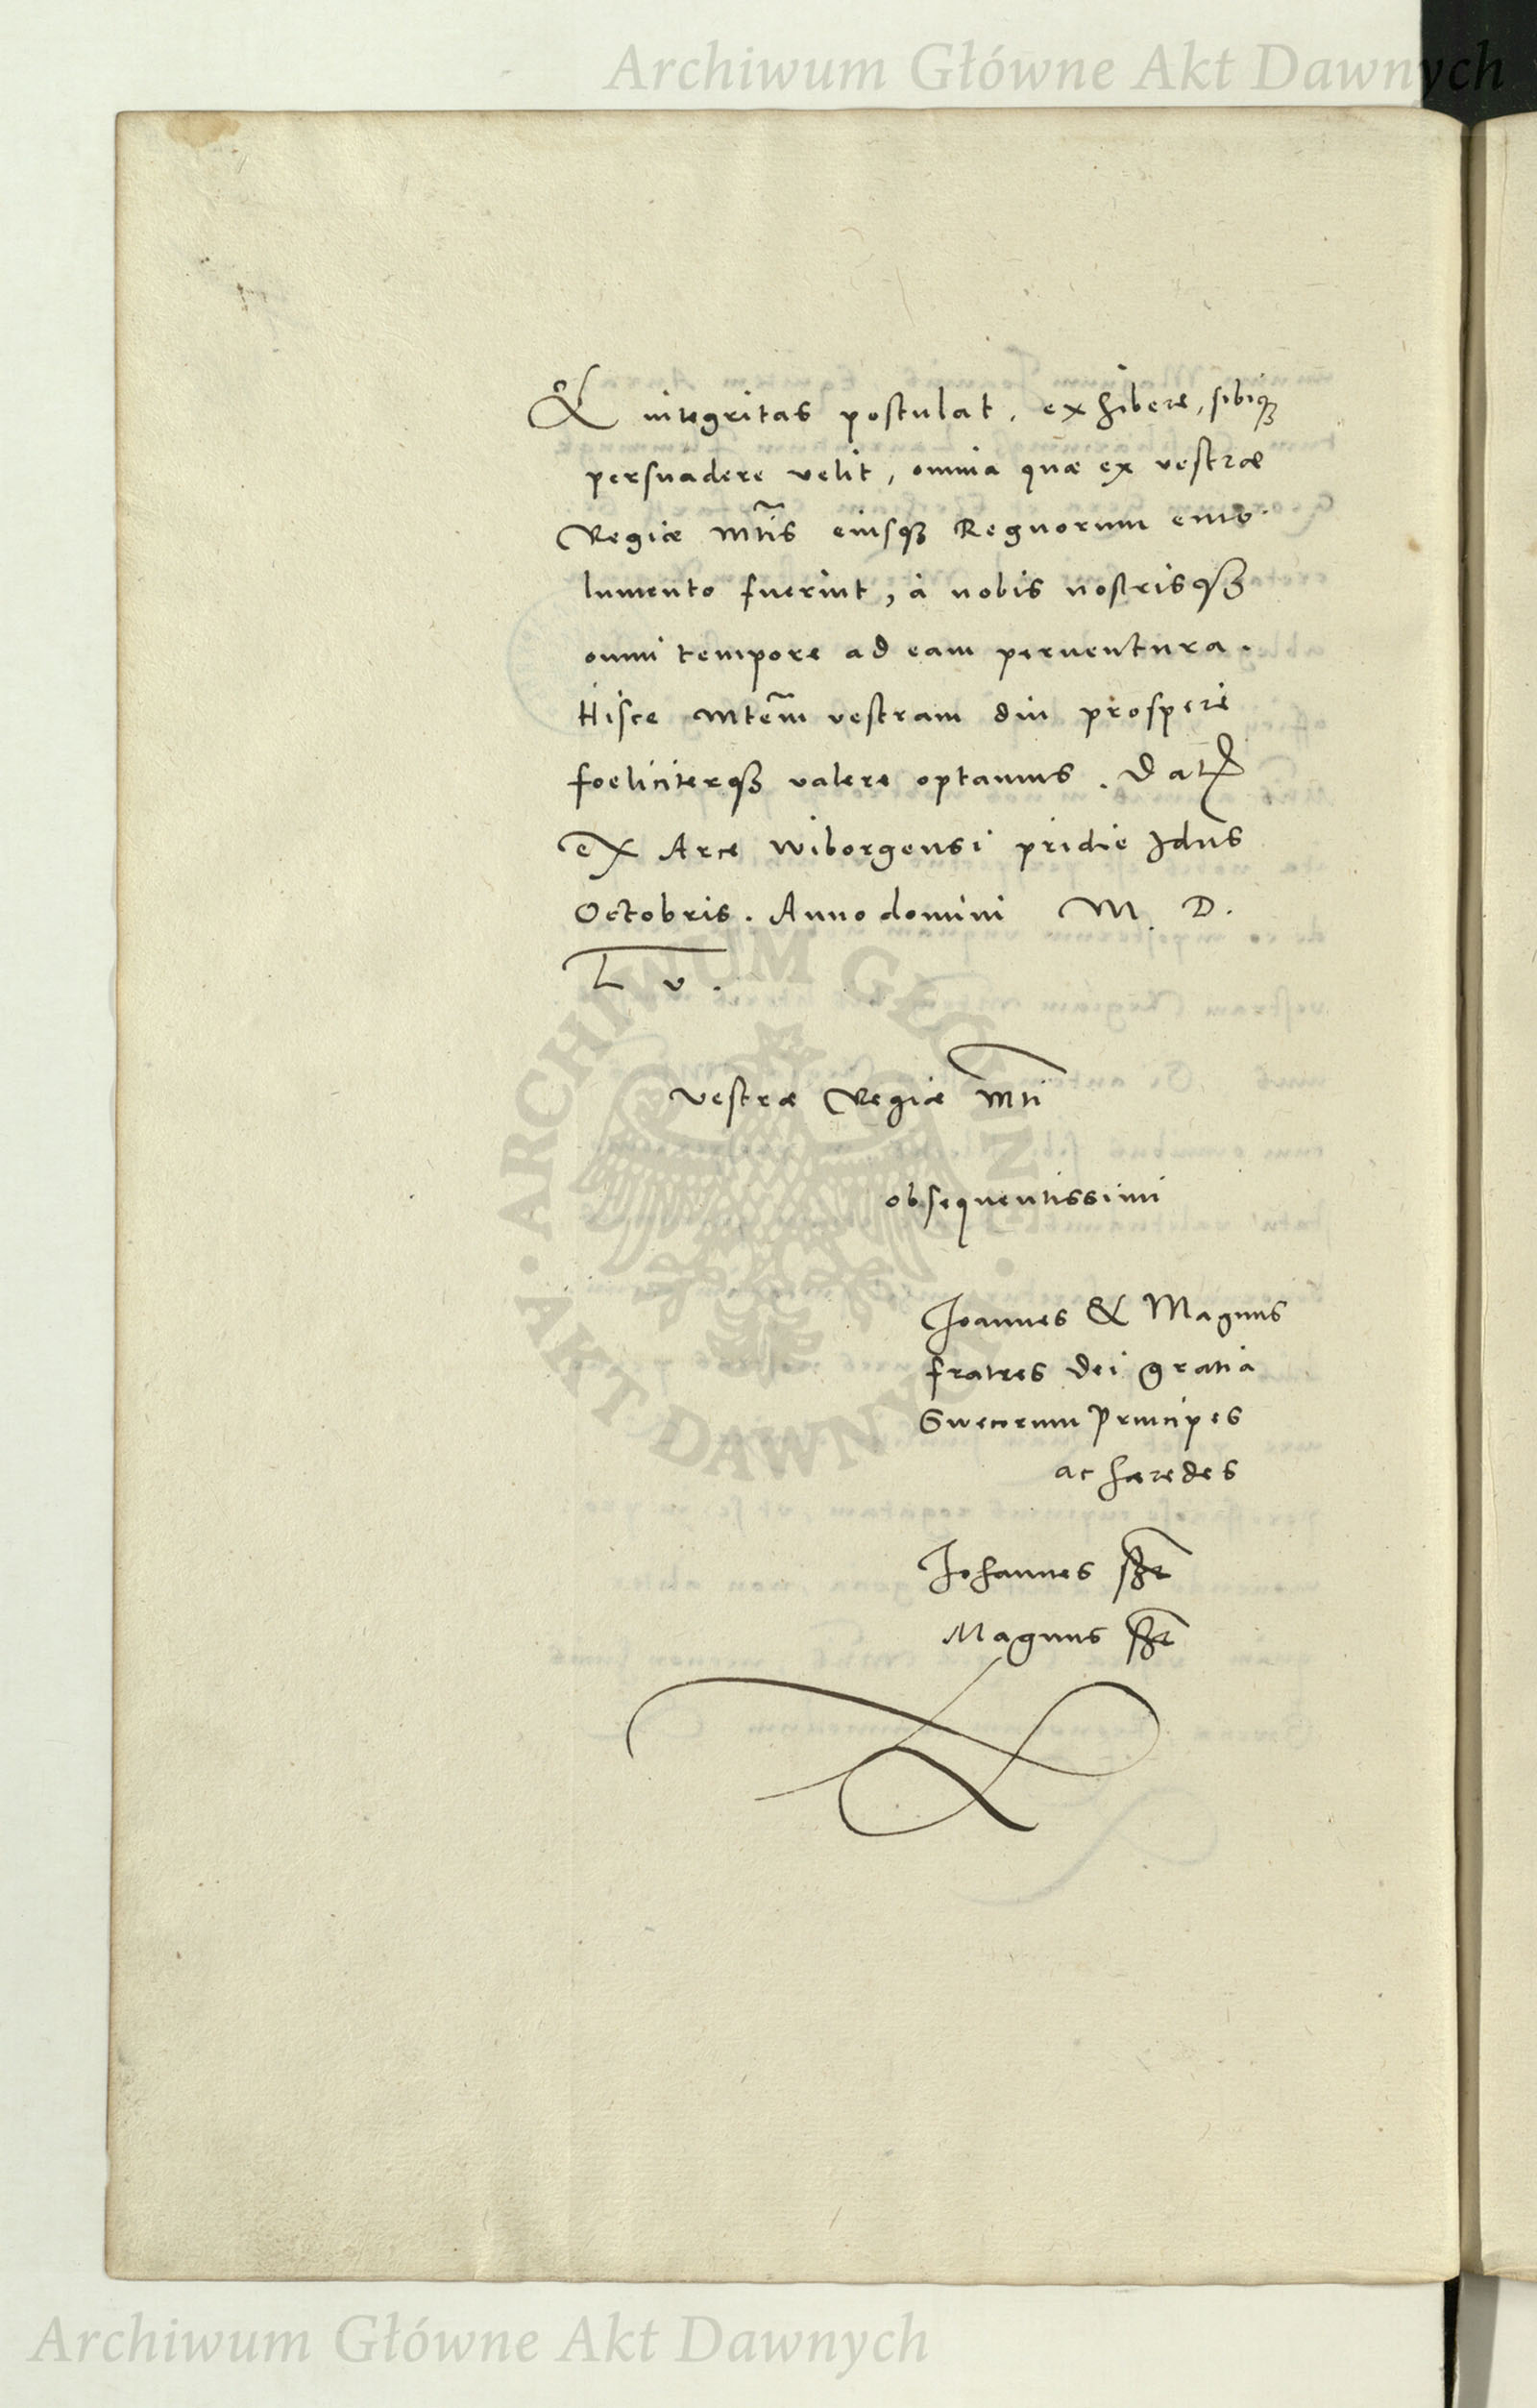 Archiwum Główne Akt Dawnych
& integritas postulat, exhibere, sibiq́ꝫ
persuadere velit, omnia quæ ex vestræ
Regiæ Mt̃is eiusqꝫ Regnorum emo-
lumento fuerint, à nobis nostrisqꝫ
omni tempore ad eam peruentura.
Hisce Mtẽm vestram diu prospere
foeliciterqꝫ valere optamus. Dat
ex Arce Wiborgensi pridie Idus
Octobris. Anno domini M. D.
L v.
Vestræ Regiæ Mti
obsequentissimi
Joannes & Magnus
fratres Dei gratia
Swecorum Principes
ac hæredes
Johannes
Magnus
ARCHIWUM GŁÓWNE
AKT DAWNYCH
Archiwum Główne Akt Dawnych